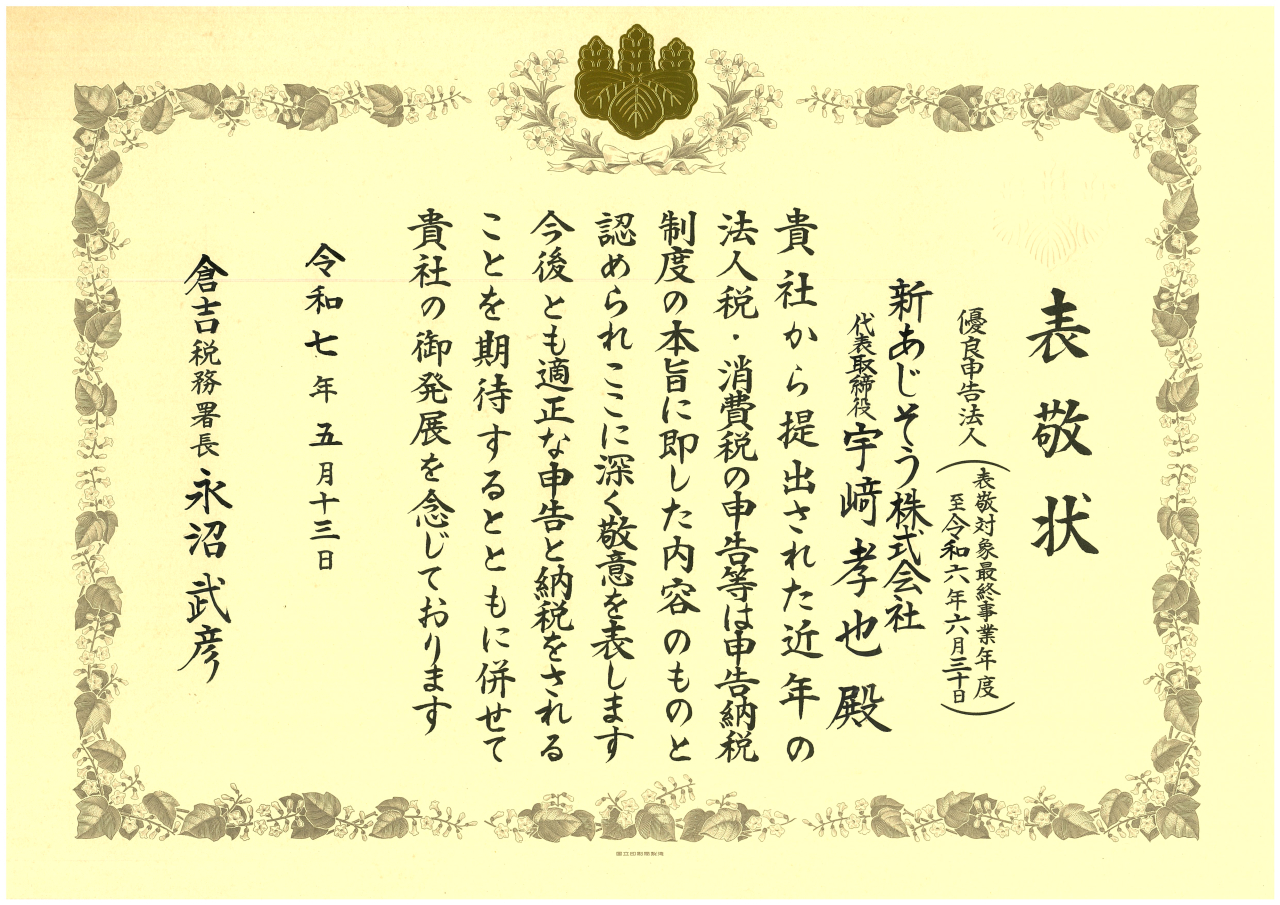 表敬状
優良申告法人
(表敬対象最終事業年度
至令和六年六月三十日)
新あじそう株式会社
代表取締役 宇﨑孝也殿
貴社から提出された近年の
法人税・消費税の申告等は申告納税
制度の本旨に即した内容のものと
認められここに深く敬意を表します
今後とも適正な申告と納税をされる
ことを期待するとともに併せて
貴社の御発展を念じております
令和七年五月十三日
倉吉税務署長 永沼武彦
國立印刷局製造